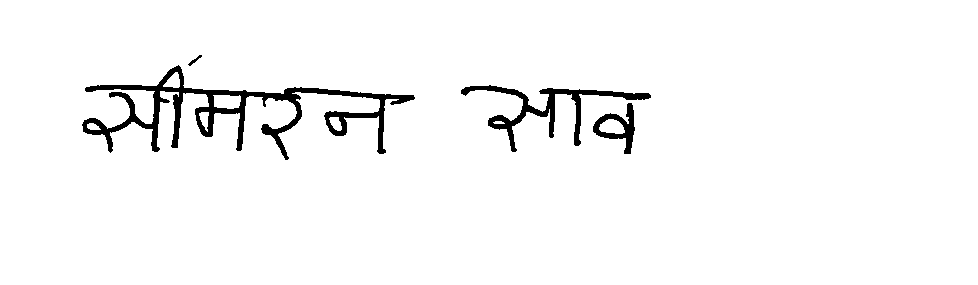 सींमरन साव